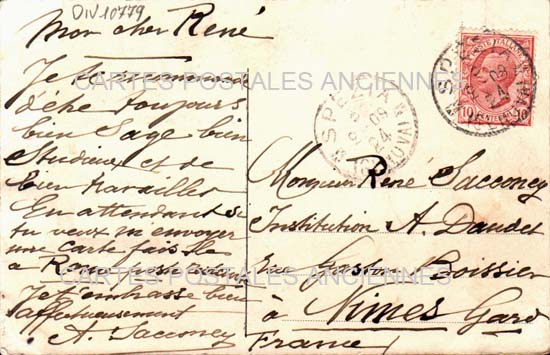 DIV10779
Mon cher René
Je te recommande
d'être toujours
bien sage bien
studieux et de
bien travailler
En attendant si
tu veux m'envoyer
une carte fais le
à Rome poste
Je t'embrasse bien
affectueusement
A. Sacconey
SPEZIA
Monsieur René Sacconey
Institution A. Daudet
Rue Gaston Boissier
à Nîmes Gard
France
CARTES POSTALES ANCIENNES
CARTES POSTALES ANCIENNES